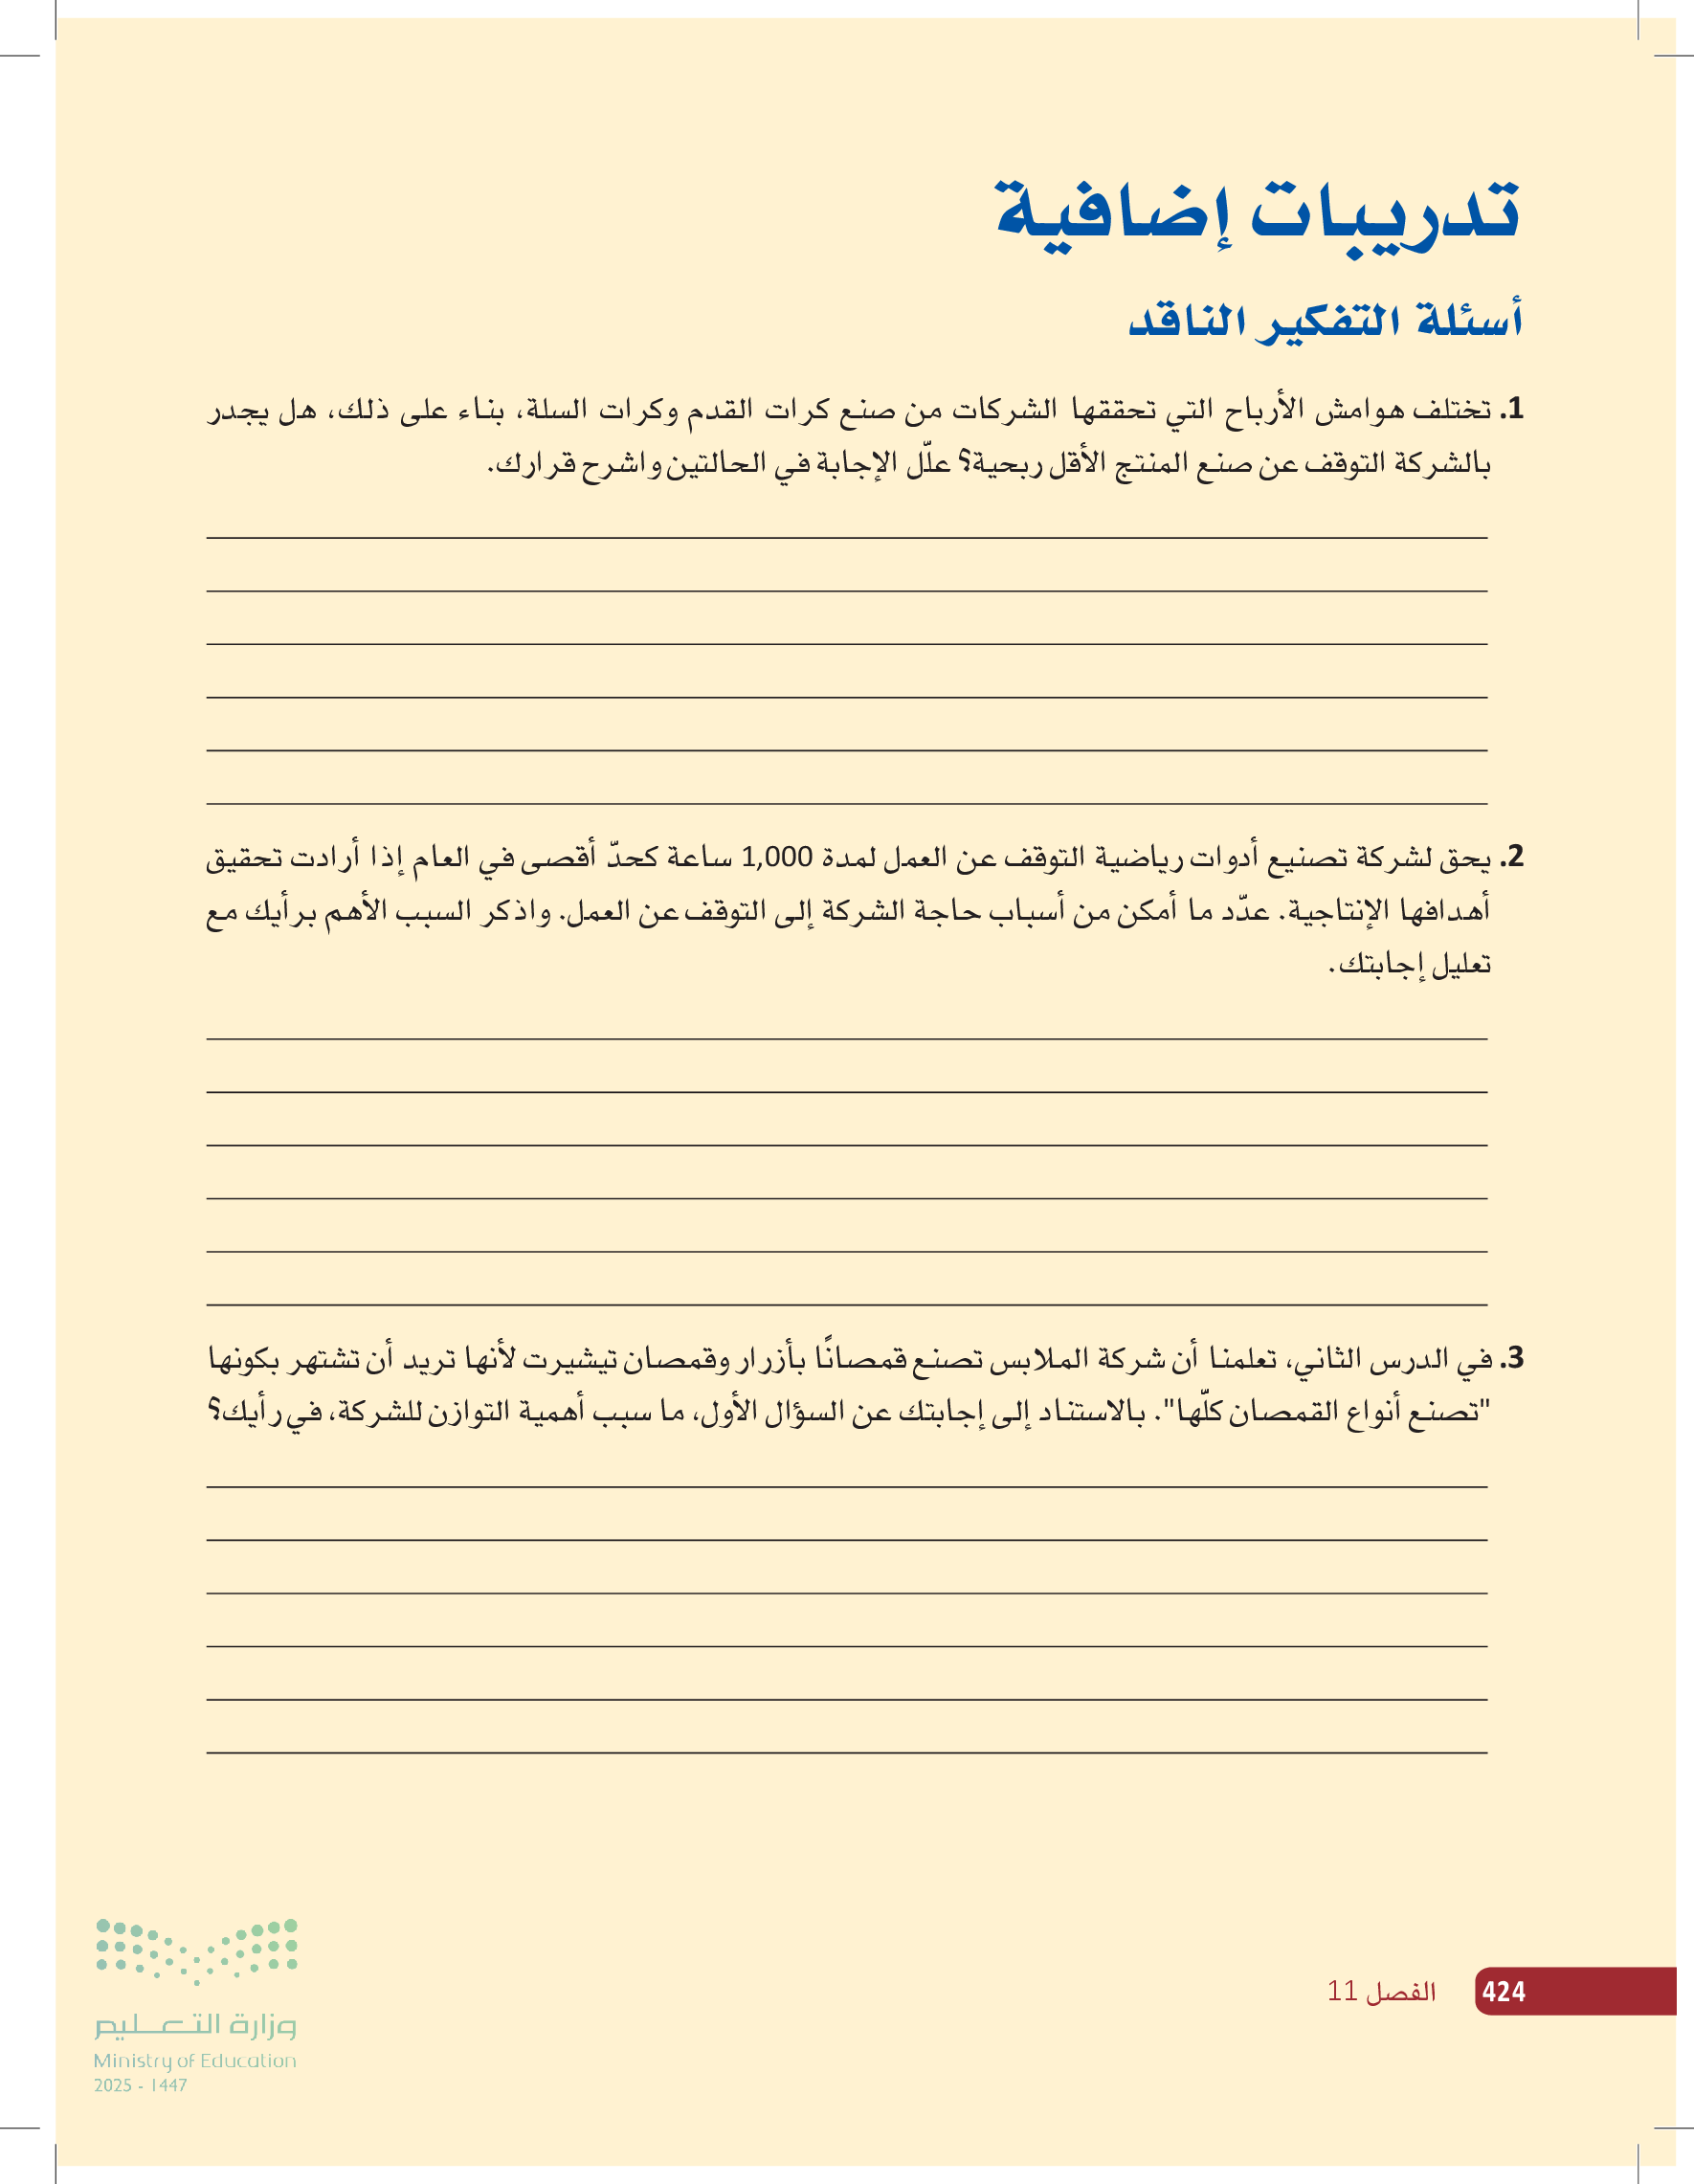 تدريبات إضافية
أسئلة التفكير الناقد
1. تختلف هوامش الأرباح التي تحققها الشركات من صنع كرات القدم وكرات السلة، بناء على ذلك، هل يجدر
بالشركة التوقف عن صنع المنتج الأقل ربحية؟ علّل الإجابة في الحالتين واشرح قرارك.
2. يحق لشركة تصنيع أدوات رياضية التوقف عن العمل لمدة 1,000 ساعة كحدّ أقصى في العام إذا أرادت تحقيق
أهدافها الإنتاجية. عدّد ما أمكن من أسباب حاجة الشركة إلى التوقف عن العمل. واذكر السبب الأهم برأيك مع
تعليل إجابتك.
3. في الدرس الثاني، تعلمنا أن شركة الملابس تصنع قمصانًا بأزرار وقمصان تيشيرت لأنها تريد أن تشتهر بكونها
"تصنع أنواع القمصان كلّها". بالاستناد إلى إجابتك عن السؤال الأول، ما سبب أهمية التوازن للشركة، في رأيك؟
424 الفصل 11
وزارة التعـــليم
Ministry of Education
2025 - 1447